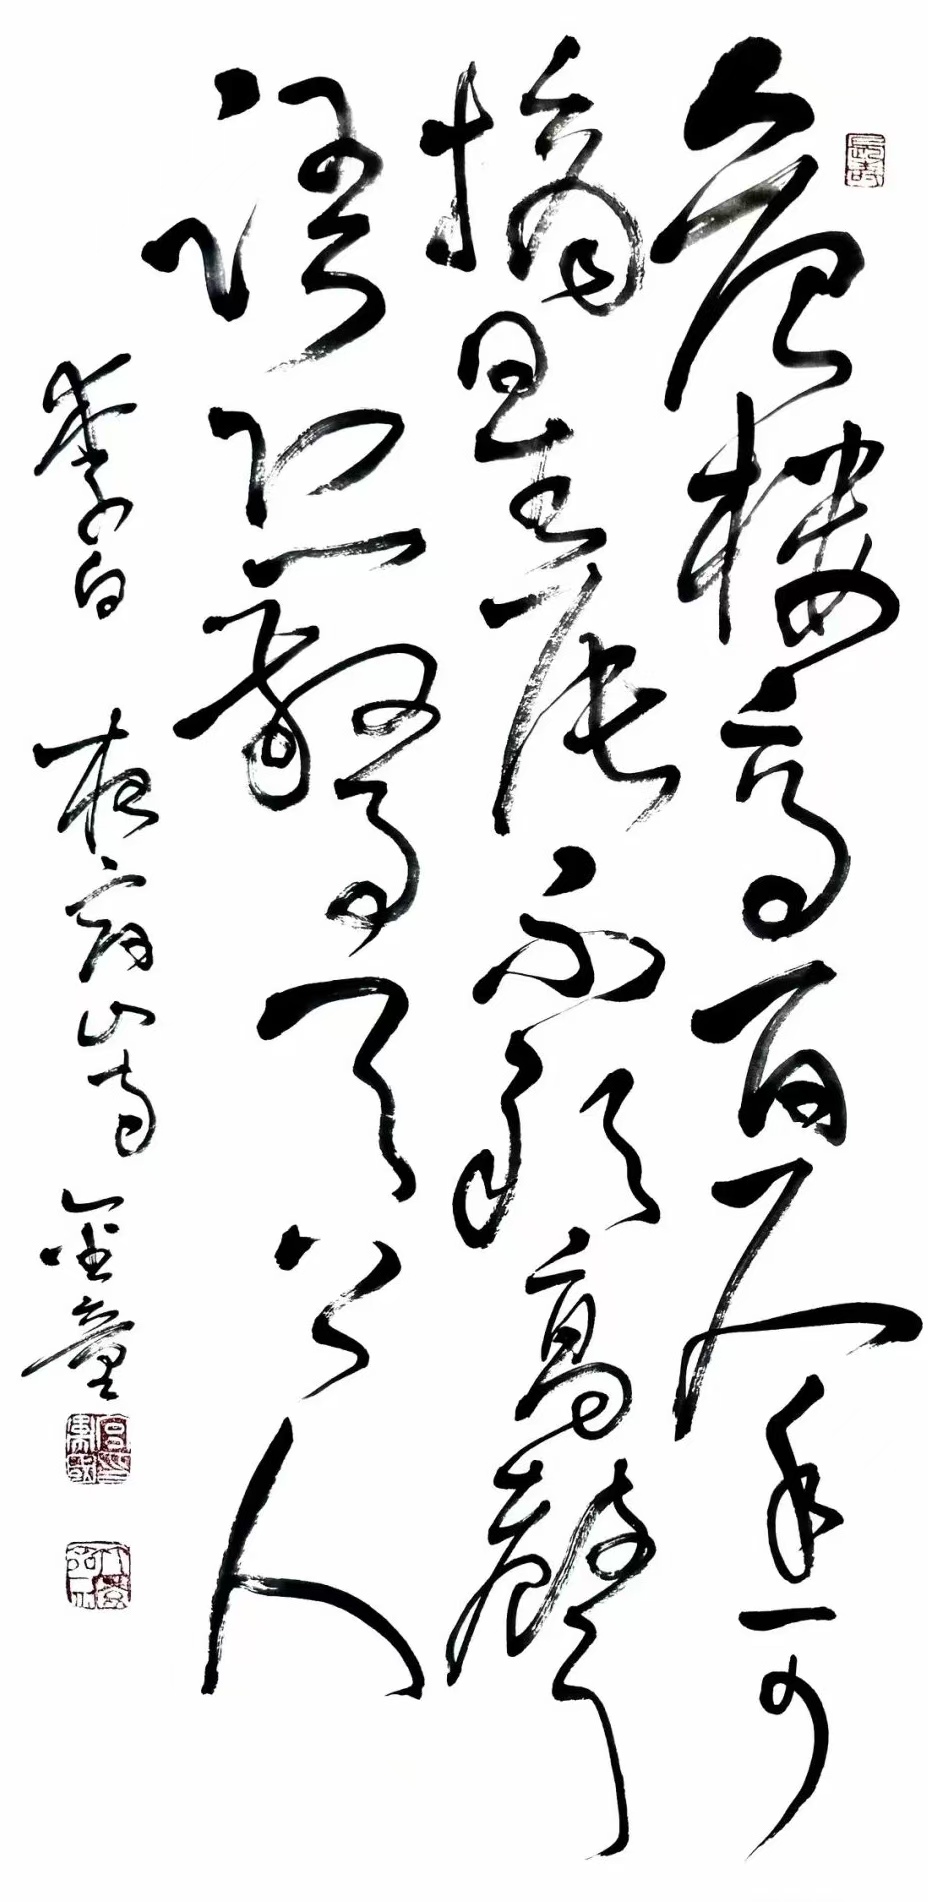 危樓高百尺手可
摘星辰不敢高聲
語恐驚天上人
李白 夜宿山寺 金童